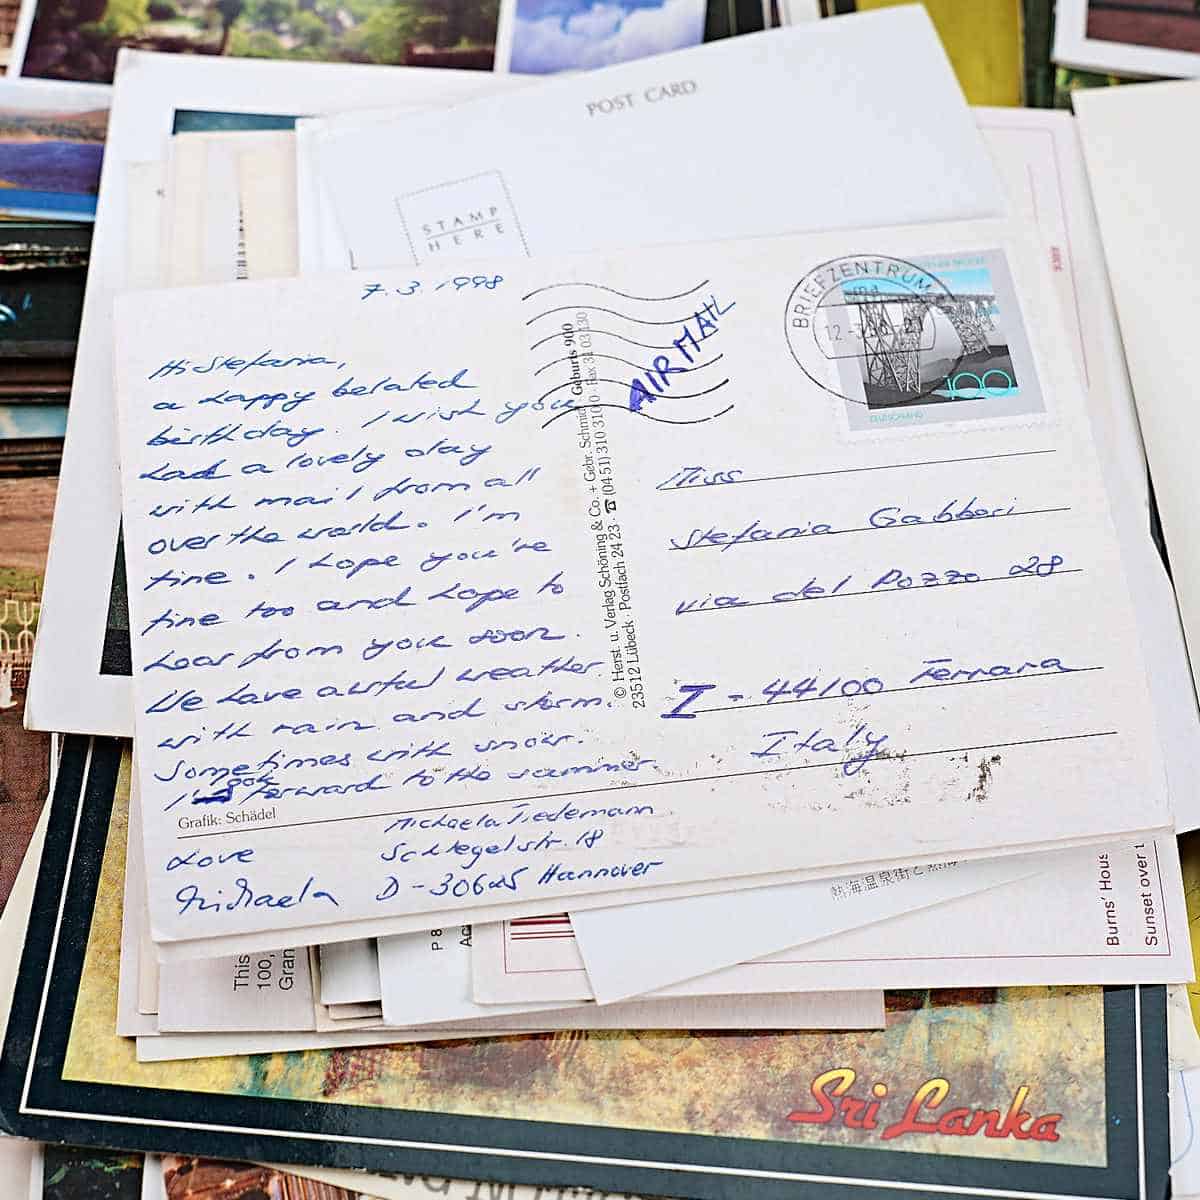 POST CARD
STAMP
HERE
7.3.1998
Hi Stefania,
a happy belated
birthday. I wish you
had a lovely day
with mail from all
over the world. I'm
fine. I hope you're
fine too and hope to
hear from you soon.
We have awful weather
with rain and storm.
Sometimes with snow.
forward to the summer.
Grafik: Schädel
Love
Michaela
Michaela Tiedemann
Schlegelstr. 18
D-30625 Hannover
© Herst. u. Verlag Schöning & Co. + Gebr. Schmidt
23512 Lübeck · Postfach 24 23 · ☎ (04 51) 310 310 · Fax 31 03 130
AIR MAIL
BRIEFZENTRUM
100
DEUTSCHLAND
Miss
Stefania Gabbori
via del Pozzo 28
I - 44100 Ferrara
Italy
熱海温泉街と熱海
Burns' Hous
Sunset over t
This
100,
Gran
P 8
Ac
Sri Lanka